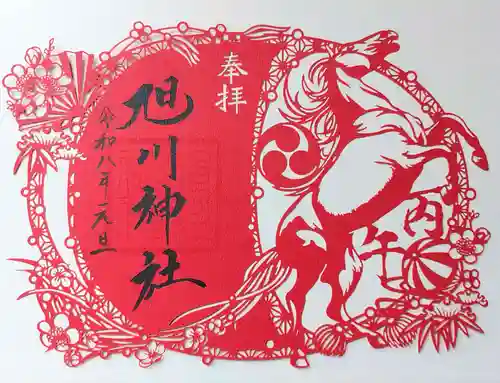 奉拝
旭川神社
令和八年元旦
丙午